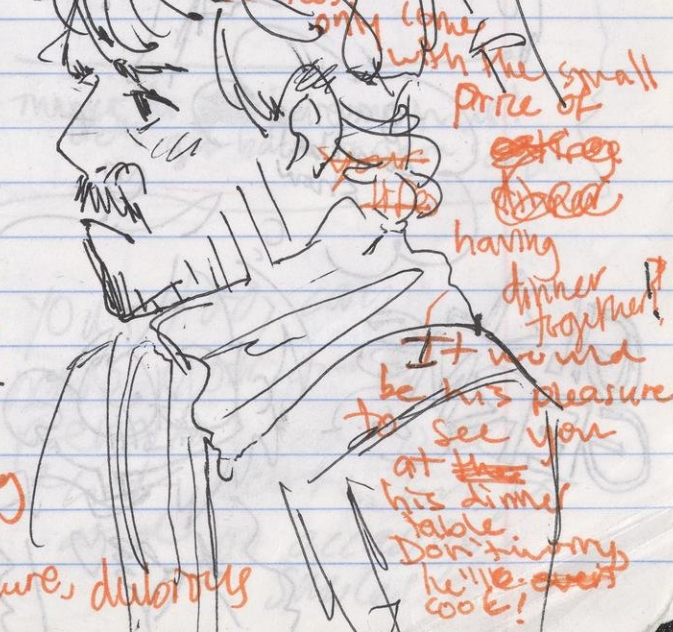 only come
with the small
price of
your
life
having
dinner
together!
It would
be his pleasure
to see you
at
his dinner
table
Don't worry
he'll
cook!
g
ure, dubious